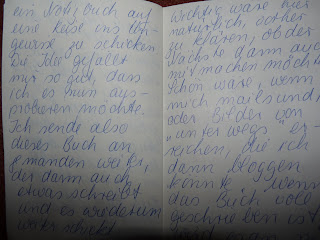 ein Notizbuch auf
eine Reise ins Un-
gewisse zu schicken.
Die Idee gefällt
mir so gut, dass
ich es nun aus-
probieren möchte.
Ich sende also
dieses Buch an
jemanden weiter,
der dann auch
etwas schreibt
und es wiederum
weiterschickt.
Wichtig wäre hier
natürlich, vorher
zu klären, ob der
Nächste dann auch
mitmachen möchte.
Schön wäre, wenn
mich mails und/
oder Bilder von
"unterwegs" er-
reichen, die ich
dann bloggen
könnte. Wenn
das Buch voll
geschrieben ist